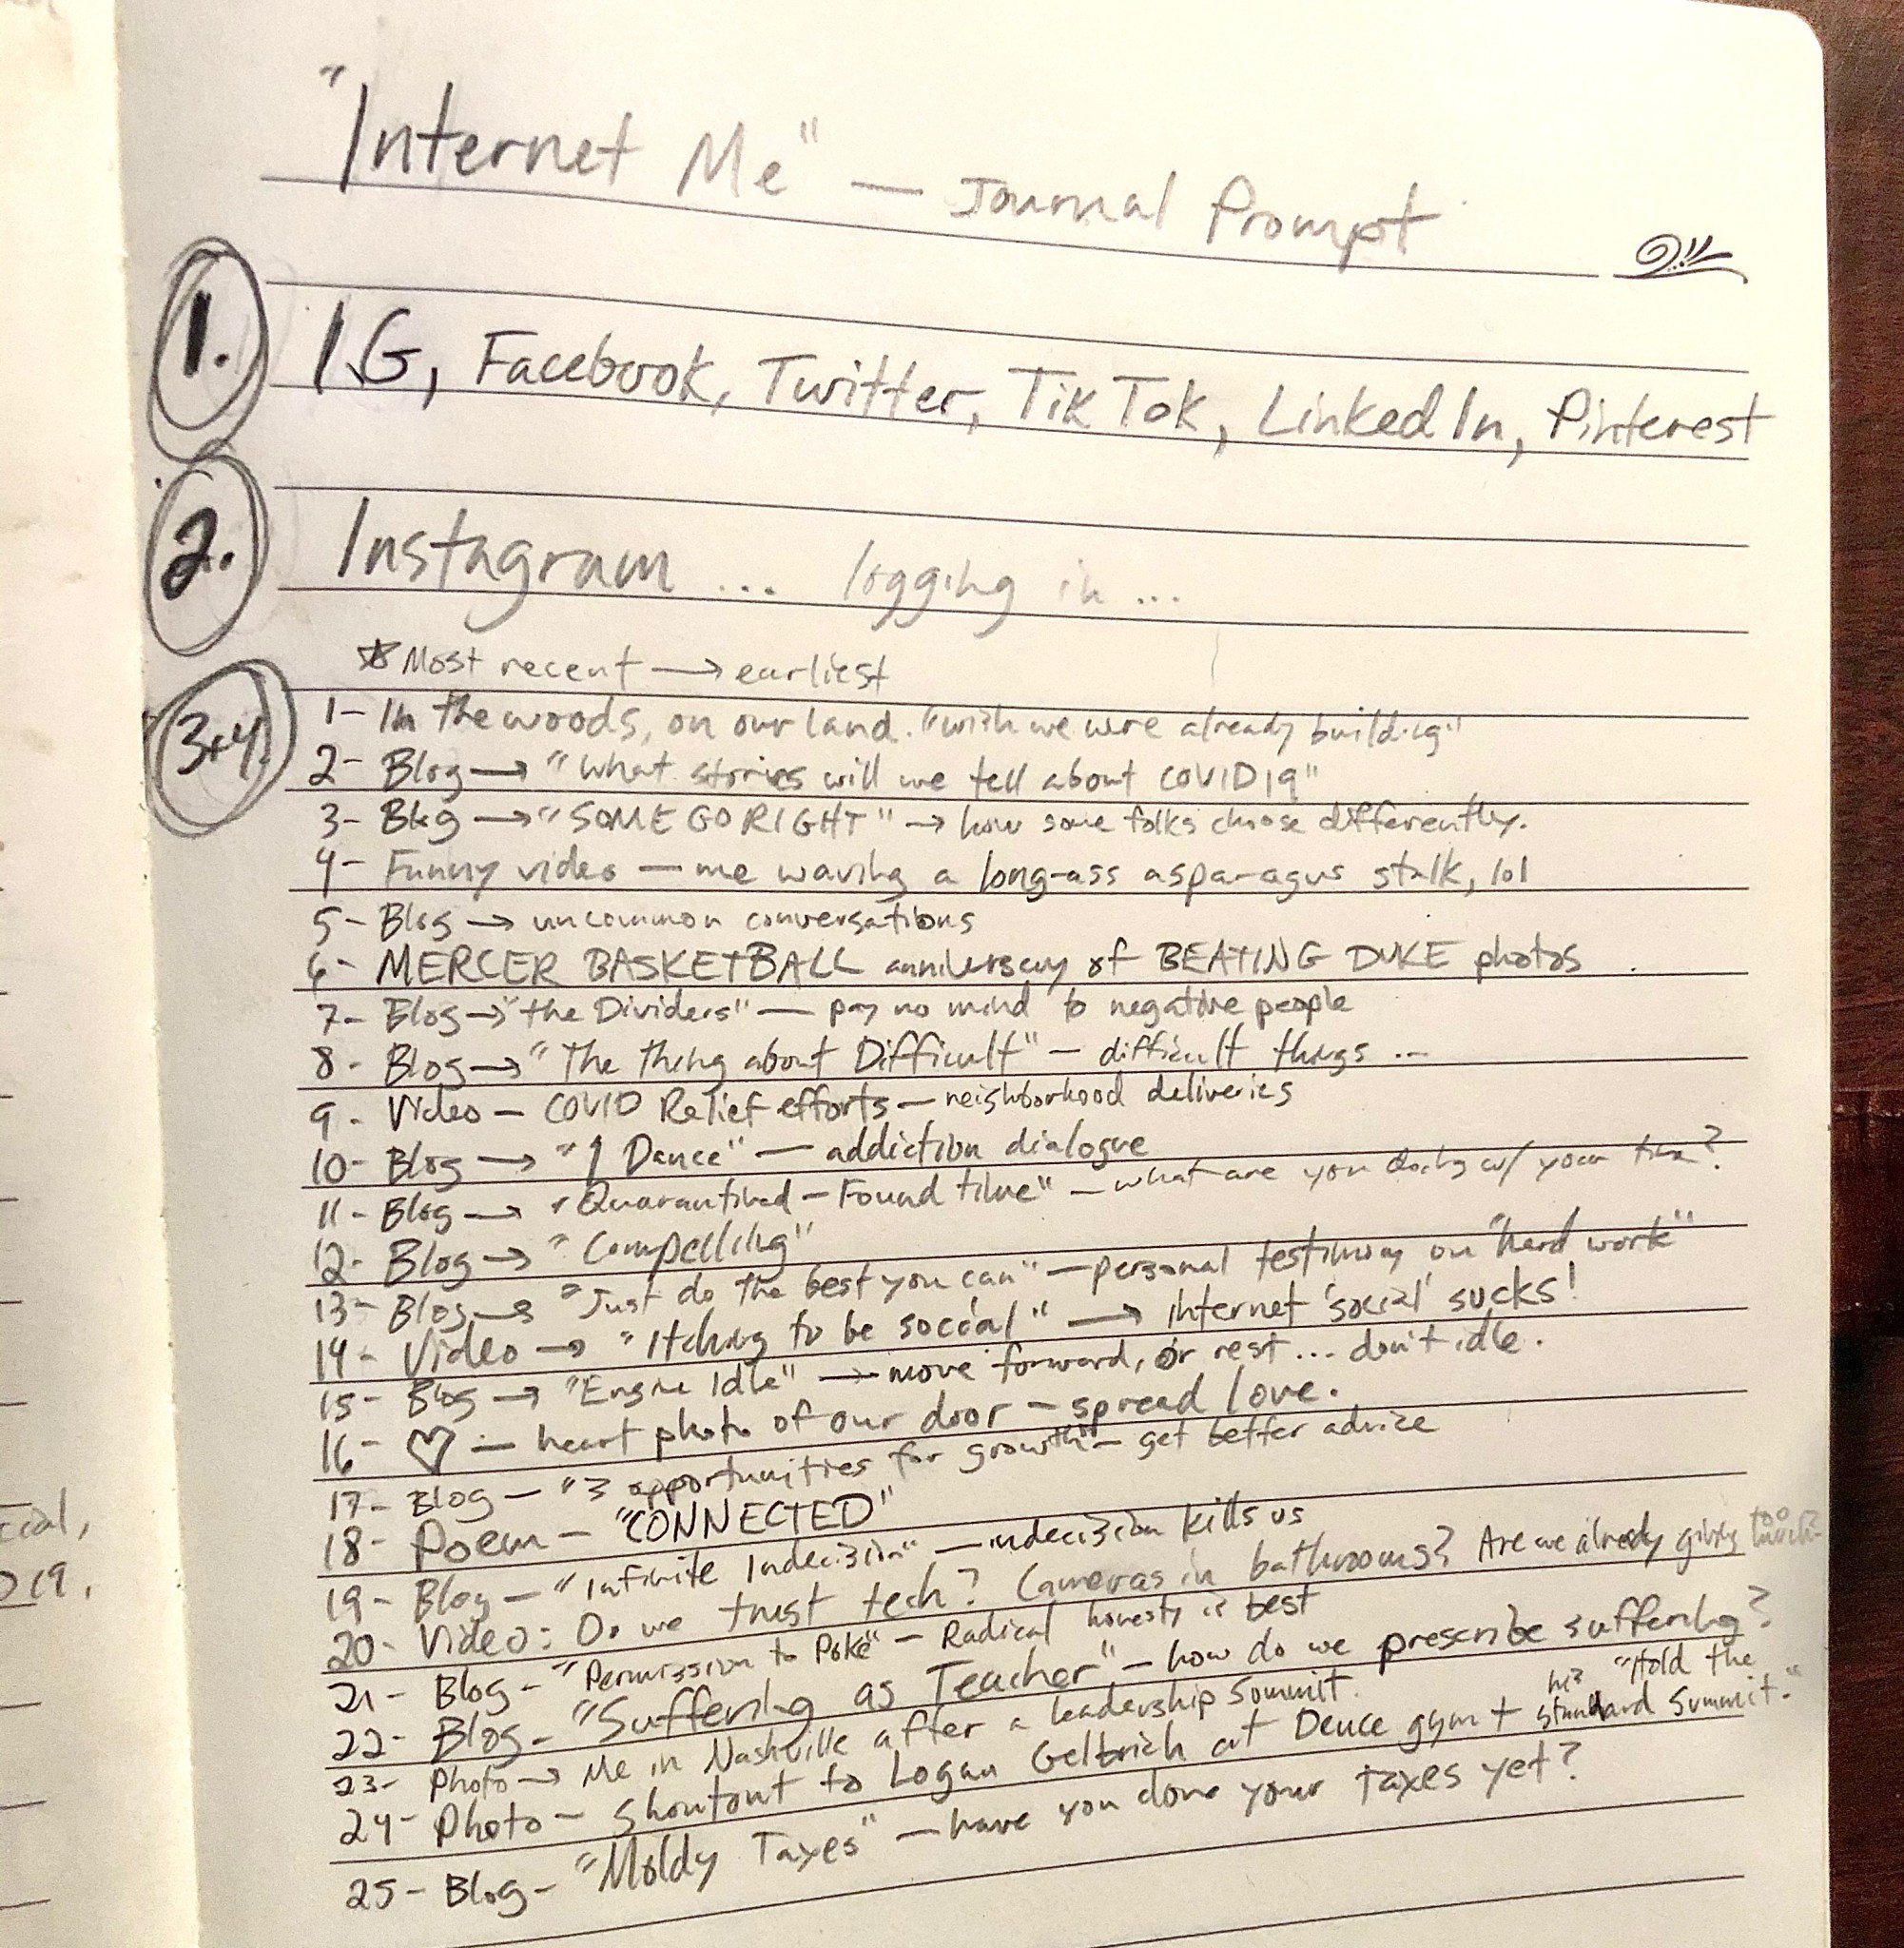 "Internet Me" — Journal Prompt
1. IG, Facebook, Twitter, TikTok, LinkedIn, Pinterest
2. Instagram ... logging in ...
☆ Most recent → earliest
3+4.
1- In the woods, on our land. "wish we were already building"
2- Blog → "What stories will we tell about COVID19"
3- Blog → "SOME GO RIGHT" → how some folks choose differently.
4- Funny video — me waving a long-ass asparagus stalk, lol
5- Blog → uncommon conversations
6- MERCER BASKETBALL anniversary of BEATING DUKE photos
7- Blog → "the Dividers" — pay no mind to negative people
8- Blog → "The thing about Difficult" — difficult things ...
9- Video — COVID Relief efforts — neighborhood deliveries
10- Blog → "1 Dance" — addiction dialogue
11- Blog → "Quarantined — Found time" — what are you doing w/ your time?
12- Blog → "Compelling"
13- Blog → "Just do the best you can" — personal testimony on "hard work"
14- Video → "Itching to be social" → Internet 'social' sucks!
15- Blog → "Engine Idle" → move forward, or rest... don't idle.
16- ♡ — heart photo of our door — spread love.
17- Blog — "3 opportunities for growth" — get better advice
18- Poem — "CONNECTED"
19- Blog — "Infinite Indecision" — indecision kills us
20- Video: Do we trust tech? Cameras in bathrooms? Are we already giving too much?
21- Blog - "Permission to Poke" — Radical honesty is best
22- Blog - "Suffering as Teacher" — how do we prescribe suffering?
23- Photo → Me in Nashville after a leadership summit.
24- Photo — Shoutout to Logan Gelbrich at Deuce gym + his "Hold the standard Summit."
25- Blog - "Moldy Taxes" — have you done your taxes yet?
cial,
19.